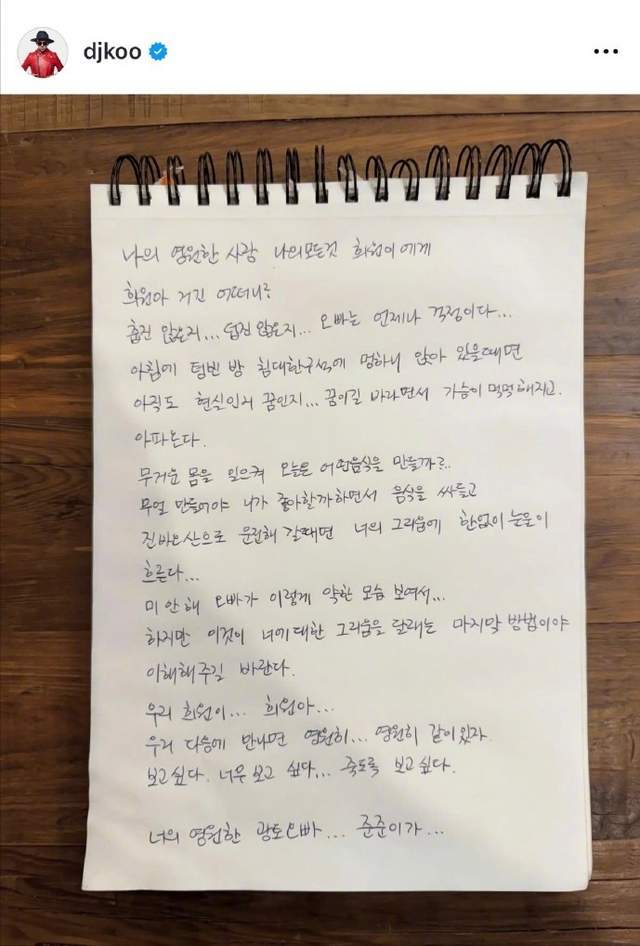 djkoo
나의 영원한 사랑 나의모든것 희원이에게
희원아 거긴 어떠니?
춥진 않은지... 덥진 않은지... 오빠는 언제나 걱정이다...
아침에 텅빈 방 침대한구석에 멍하니 앉아 있을때면
아직도 현실인지 꿈인지... 꿈이길 바라면서 가슴이 먹먹해지고.
아파온다.
무거운 몸을 일으켜 오늘은 어떤음식을 만들까?..
무얼 만들어야 니가 좋아할까하면서 음식을 싸들고
진바오산으로 운전해 갈때면 너의 그리움에 한없이 눈물이
흐른다...
미안해 오빠가 이렇게 약한 모습 보여서...
하지만 이것이 너에대한 그리움을 달래는 마지막 방법이야
이해해주길 바란다.
우리 희원이... 희원아...
우리 다음에 만나면 영원히... 영원히 같이있자
보고싶다. 너무 보고 싶다... 죽도록 보고싶다.
너의 영원한 광토오빠... 준준이가...